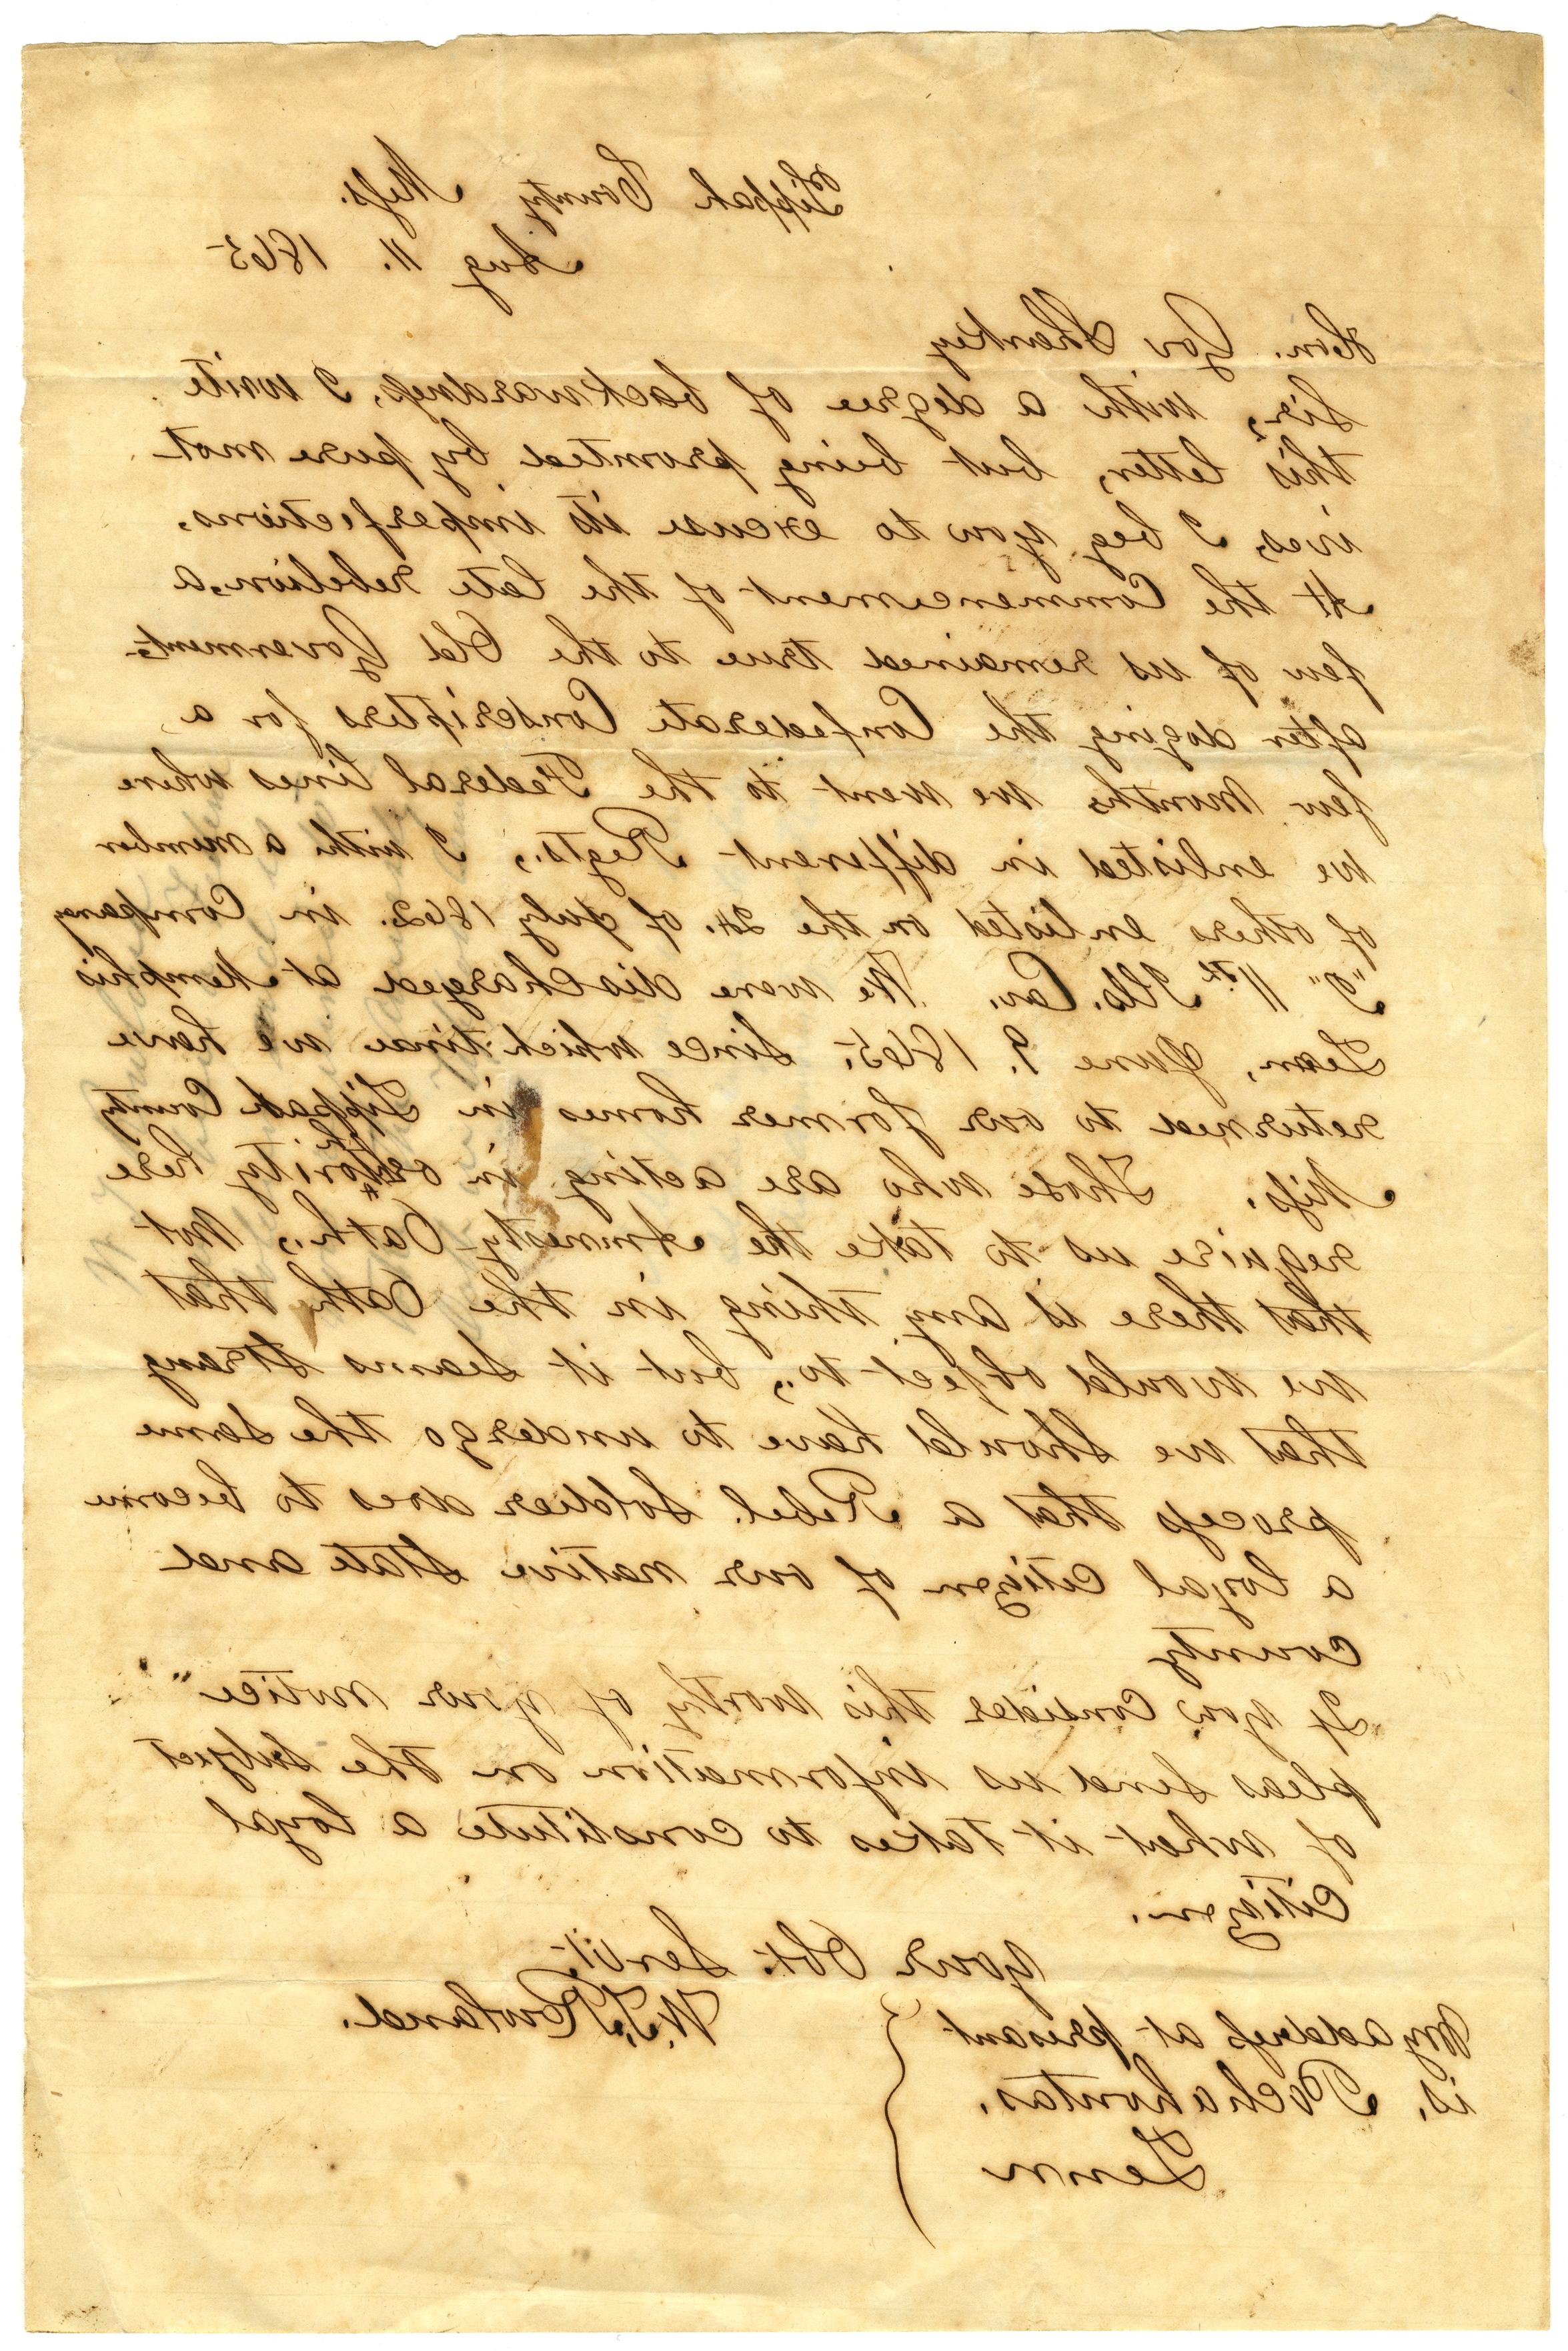 Tippah County Miss.
Aug 11. 1865
Hon. Gov Sharkey
Sir, with a degree of backwardness, I write
this letter, but being promted by pure mot
ives, I beg you to excuse its imperfections.
At the Commencement of the late rebelion, a
few of us remained true to the Old Goverment
after doging the Confederate Conscripters for a
few months we went to the Federal lines where
we enlisted in different Regts., I with a number
of others enlisted on the 24. of July 1862. in Company
"I" 11th Ills. Cav. We ware discharged at Memphis
Tenn, June 9. 1865. Since which time we have
returned to our former homes in Tippah County
Miss. Those who are acting in orthority here
require us to take the Amnesty Oath., not
that there is any thing in the Oath that
we would object to, but it seams strang
that we should have to undergo the same
process that a Rebel Soldier does to become
a loyal citizen of our native State and
county
If you Consider this worthy of your notice"
pleas send us information on the subject
of what it takes to constitute a loyal
Citizen.
your Obt. Servt.
W. J. Rowland.
My address at present
is, Pochahontas,
Tenn